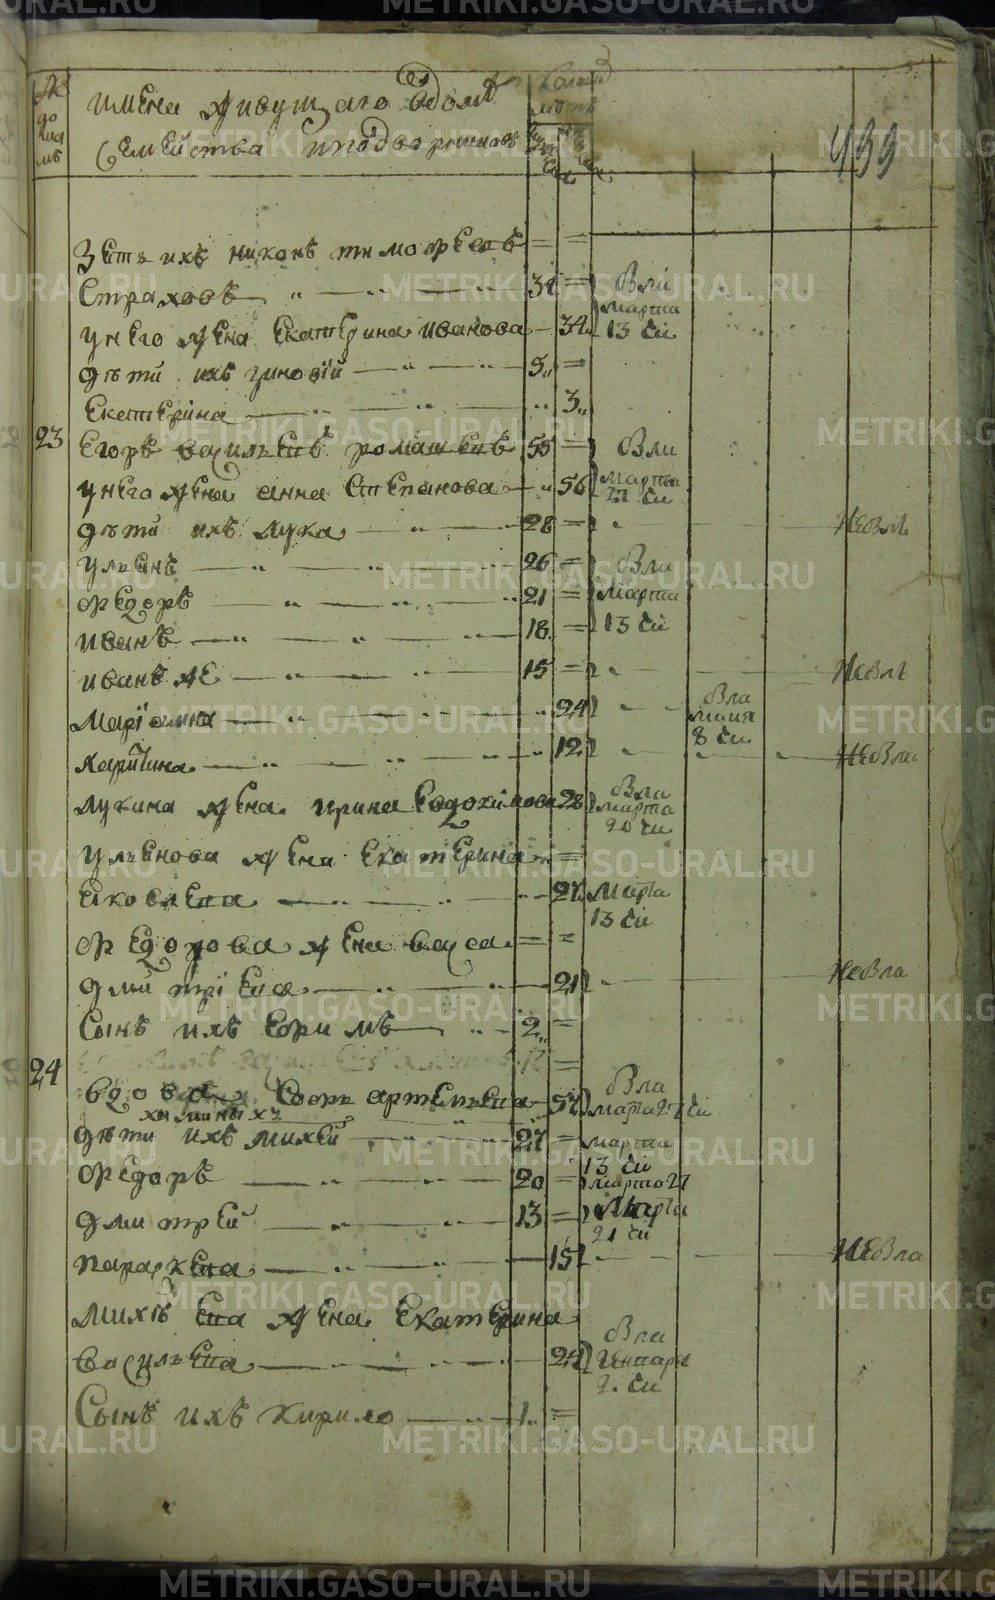 имена живущаго вдомѣ
семейства
499
Зеть ихъ никонъ тимофеевъ = =
Страховъ 34 = вли марта 13 чи
унего жена Екатерина иванова 34
дѣти ихъ зиновiй 5 =
Екатерина 3
23 Егоръ васильевъ ромашевъ 55 = вли
унего жена анна Степанова 56 марта 27 чи
дѣти ихъ лука 28 = невлъ
ульянъ 26 = вли
федоръ 21 = марта
иванъ 18 = 13 чи
иванъ же 15 = невлъ
Марiямна 24 вла маия 8 чи
харитина 12 невла
лукина жена ирина Евдокимова 28 вла марта 20 чи
ульянова жена Екатерина =
яковлева 27 марта 13 чи
федорова жена васа = =
дмитрiева 21 невла
Сынъ ихъ Ефимъ 2 =
24
вдова Софья артемьева 57 вла марта 27 чи
дѣти ихъ михей 27 = марта 13 чи
федоръ 20 = марта 27
дмитрей 13 = марта 21 чи
параскева 15 невла
михѣева жена Екатерина
васильева 24 вла генваря 2 чи
Сынъ ихъ кирило 1 =
METRIKI.GASO-URAL.RU